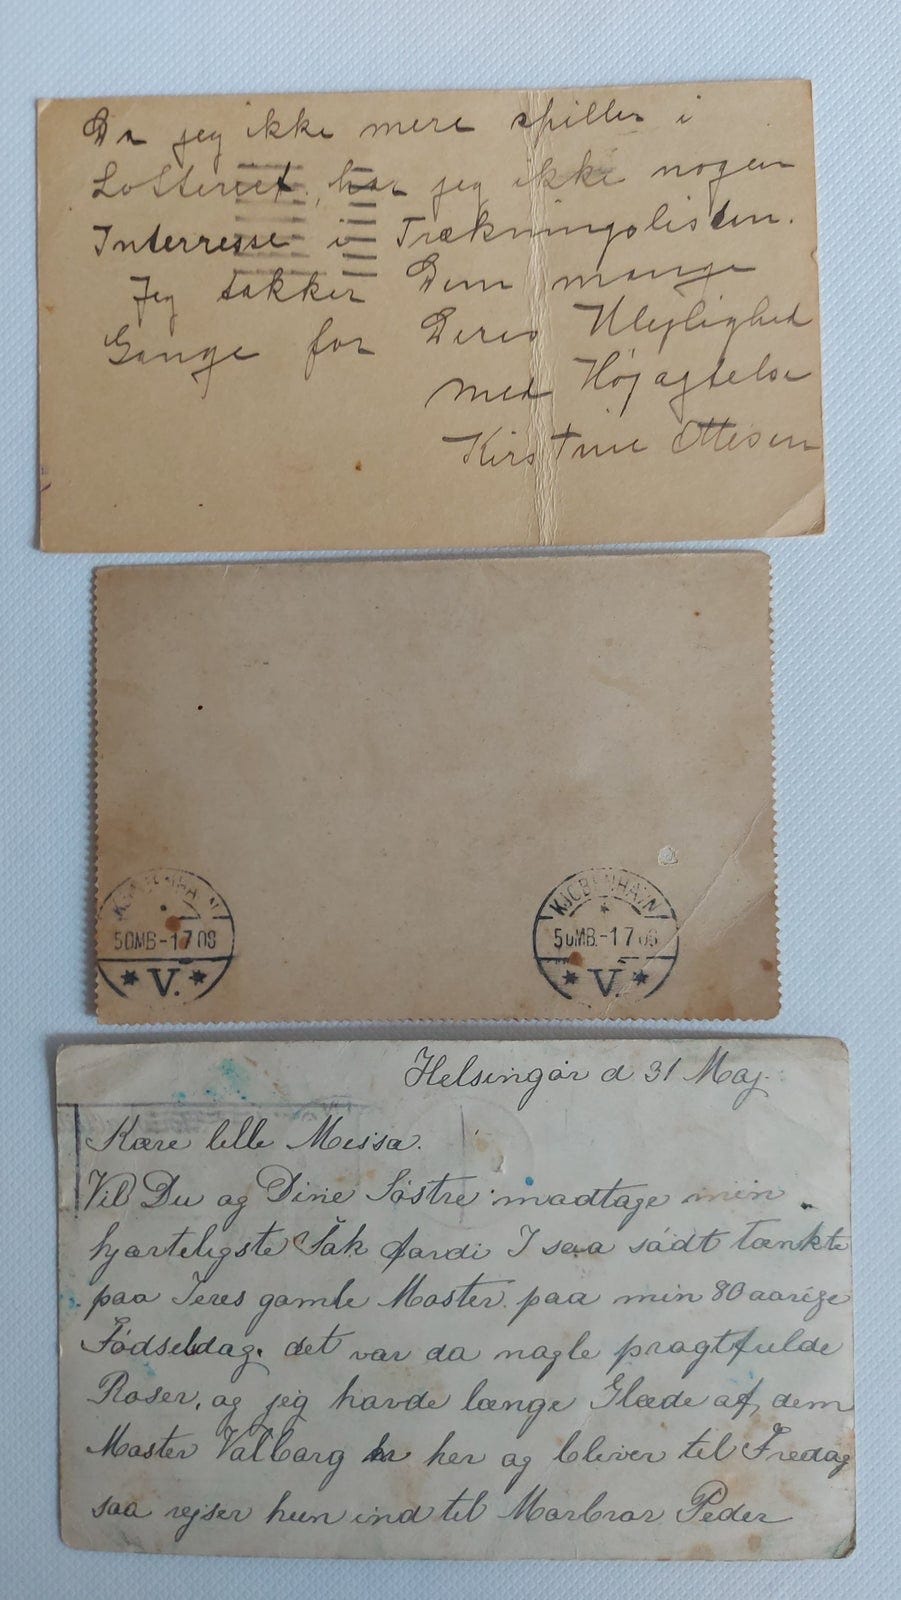 Da jeg ikke mere spiller i
Lotteriet, har jeg ikke nogen
Interresse i Trækningslisten.
Jeg takker Dem mange
Gange for Deres Ulejlighed
med Højagtelse
Kirstine Ottesen
KJØBENHAVN
5OMB-1 7 08
* V. *
KJØBENHAVN
5OMB.-1 7 08
* V. *
Helsingør d 31 Maj.
Kære lille Meissa.
Vil Du og Dine Søstre modtage min
hjærteligste Tak fordi I saa sødt tænkte
paa Jeres gamle Moster paa min 80 aarige
Fødselsdag. det var da nogle pragtfulde
Roser, og jeg havde længe Glæde af dem
Moster Valborg er her og bliver til Fredag
saa rejser hun ind til Morbror Peder